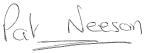 Pat Neeson